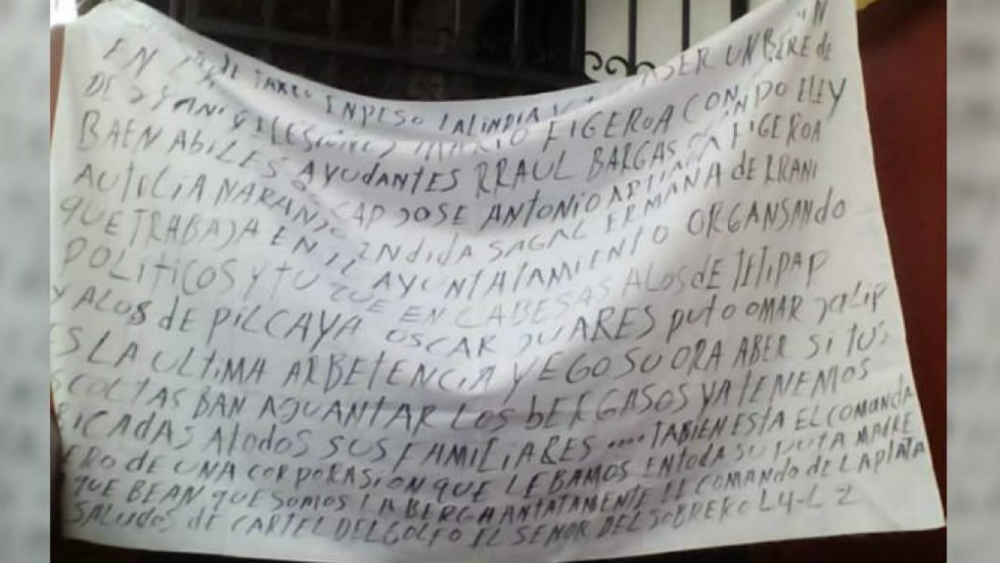 EN TAXCO EMPESO LALINDIA SER UN BERE de
DESYANI MARIO FIGEROA CON PO ELEY
BAEN ABILES AYUDANTES RRAUL BARGAS FIGEROA
AUTILIA NARANJO CAP JOSE ANTONIO
QUE TRABAJA EN EL ENDIDA SAGAL ERMANA de RRANI
POLITICOS Y TU AYUNTATAMIENTO ORGANSANdO
QUE EN CABESAS ALOS dE TETIPAP
Y ALOS dE PILCAYA OSCAR JUARES PUTO OMAR JALIP
ES LA ULTIMA ARBETENCIA YEGO SU ORA ABER SI TUS
SCOLTAS BAN AGUANTAR LOS bERGASOS YA TENEMOS
BICADAS ATODOS SUS FAMILIARES .... TABIEN ESTA EL COMANDA
ERO DE UNA CORPORASION QUE LEBAMOS ENTODA SU PUTA MADRE
QUE BEAN QUE SOMOS LA BERGA ANTATAMENTE EL COMANDO DE LA PLATA
SALUDOS DE CARTEL DEL GOLFO EL SEÑOR DEL SOBRERO L4-L2